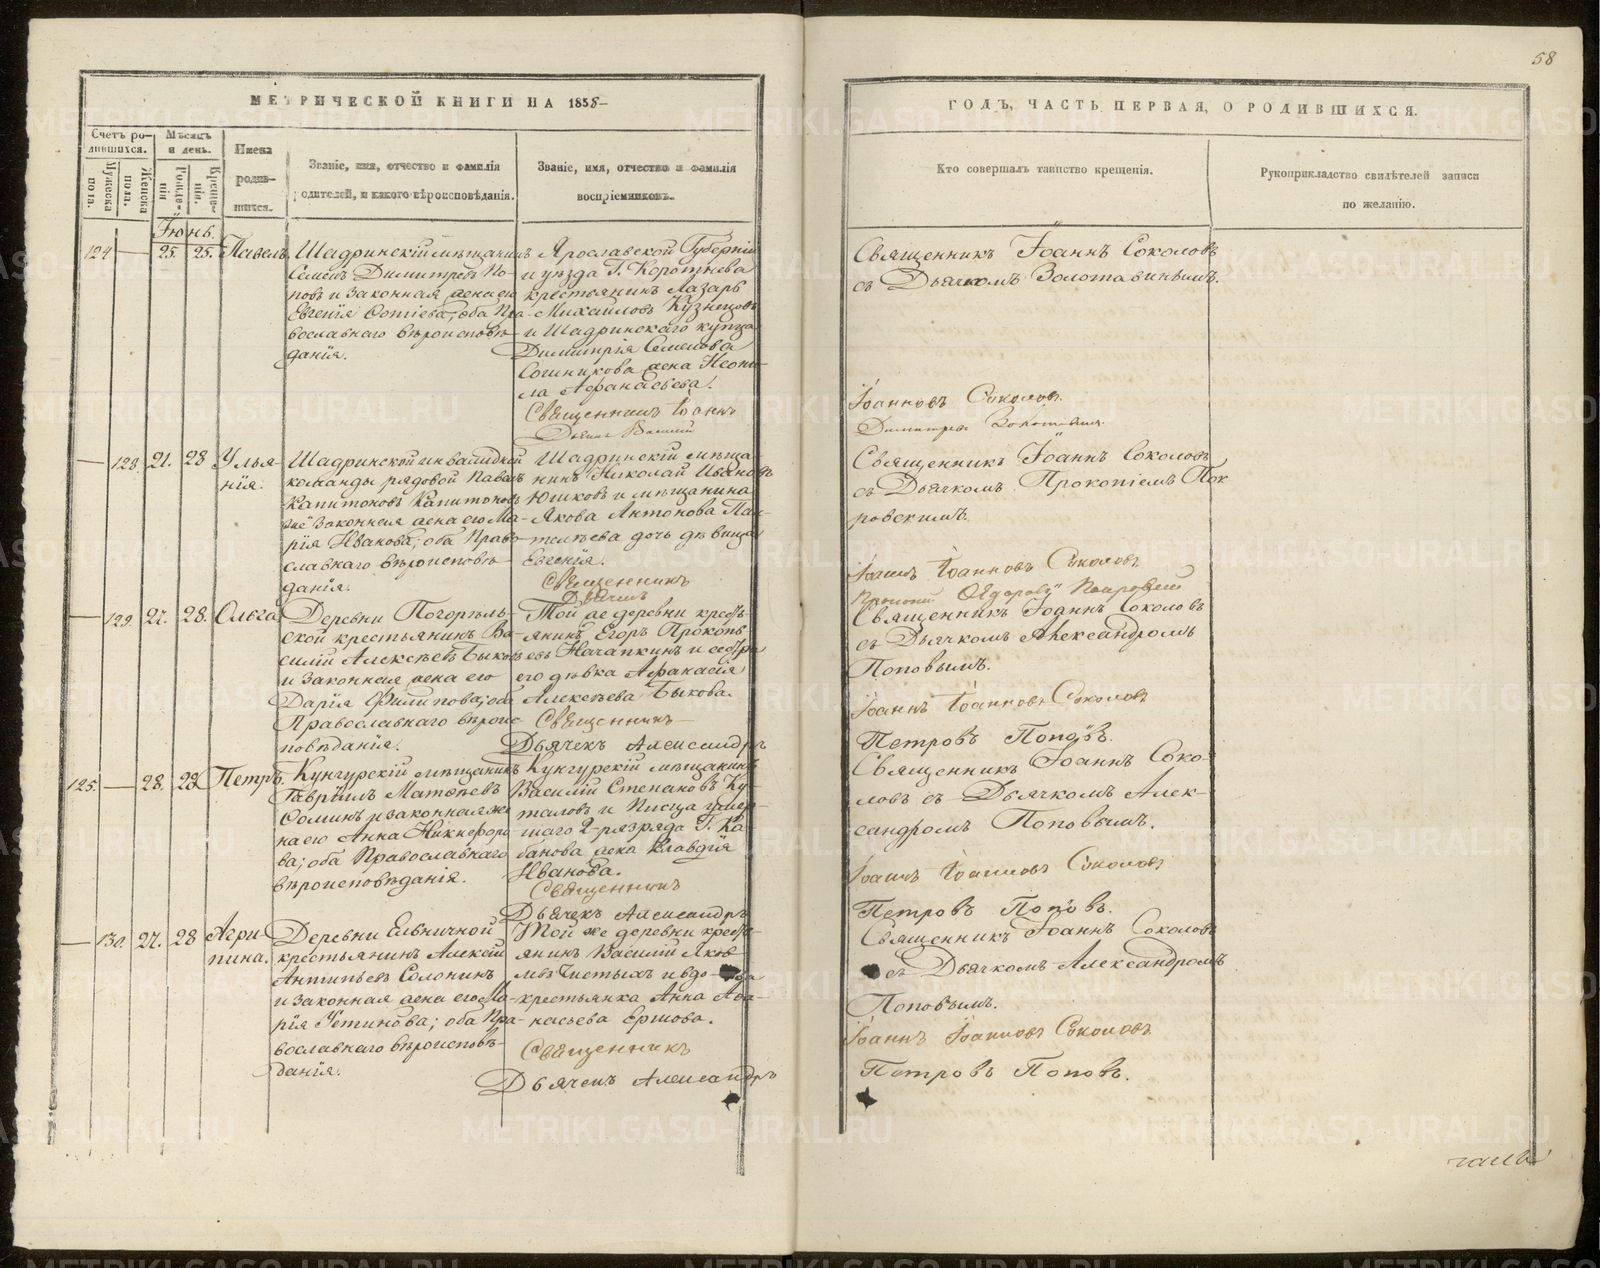 58
МЕТРИЧЕСКОЙ КНИГИ НА 1858
ГОДЪ, ЧАСТЬ ПЕРВАЯ, О РОДИВШИХСЯ.
Счетъ ро-
дившихся.
Мужеска
пола.
Женска
пола.
Мѣсяцъ
и день.
Рожде-
нія
Креще-
нія.
Имена
родив-
шихся.
Званіе, имя, отчество и фамилія
родителей, и какого вѣроисповѣданія.
Званіе, имя, отчество и фамилія
воспріемниковъ.
Кто совершалъ таинство крещенія.
Рукоприкладство свидѣтелей записи
по желанію.
Іюнь.
124 — 25. 25. Павелъ
Шадринскій мѣщанинъ
Семенъ Димитревъ По-
повъ и законная жена его
Евгенія Фотіева, оба Пра-
вославнаго вѣроисповѣ-
данія.
Ярославской Губерніи
и уѣзда Г. Коротнева
крестьянинъ Лазарь
Михаиловъ Кузнецовъ
и Шадринскаго купца
Димитрія Семенова
Сошникова жена Неони-
ла Афанасьева.
Священникъ Іоаннъ
Священникъ Іоаннъ Соколовъ
съ Дьячкомъ Золотавинымъ.
Іоанновъ Соколовъ.
— 128. 21. 28 Улья-
нія.
Шадринской инвалидной
команды рядовой Павелъ
Капитоновъ Капитоновъ
и законная жена его Ма-
рія Иванова, оба Право-
славнаго вѣроисповѣ-
данія.
Шадринскій мѣща-
нинъ Николай Ивановъ
Юшковъ и мѣщанина
Якова Антонова Пан-
телѣева дочь дѣвица
Евгенія.
Священникъ
Дьячекъ
Священникъ Іоаннъ Соколовъ
съ Дьячкомъ Прокопіемъ Пок
ровскимъ.
Іоаннъ Іоанновъ Соколовъ
Прокопій Ѳедоровъ Покровскій
— 129. 27. 28. Ольга
Деревни Погорѣль-
ской крестьянинъ Ва-
силій Алексѣевъ Быковъ
и законная жена его
Дарія Филипова, оба
Православнаго вѣроис-
повѣданія.
Той же деревни кресть-
янинъ Егоръ Прокопь-
евъ Начапкинъ и сестра
его дѣвка Афанасія
Алексѣева Быкова.
Священникъ
Дьячекъ Александръ
Священникъ Іоаннъ Соколовъ
съ Дьячкомъ Александромъ
Поповымъ.
Іоаннъ Іоанновъ Соколовъ
Петровъ Поповъ.
125. — 28. 28 Петръ.
Кунгурскій мѣщанинъ
Гавріилъ Матвѣевъ
Ѳоминъ и законная же-
на его Анна Никифоро-
ва; оба Православнаго
вѣроисповѣданія.
Кунгурскій мѣщанинъ
Василій Степановъ Ку-
таловъ и Писца умер-
шаго 2 разряда Г. Ка-
банова жена Клавдія
Иванова.
Священникъ
Дьячекъ Александръ
Священникъ Іоаннъ Соко-
ловъ съ Дьячкомъ Алек-
сандромъ Поповымъ.
Іоаннъ Іоанновъ Соколовъ
Петровъ Поповъ.
— 130. 27. 28 Агри-
пина.
Деревни Ельничной
крестьянинъ Алексій
Антипьевъ Солонинъ
и законная жена его Ма-
рія Устинова; оба Пра-
вославнаго вѣроисповѣ-
данія.
Той же деревни кресть-
янинъ Василій Яков-
левъ Чистыхъ и вдо-ва
крестьянка Анна Афа-
насьева Ершова.
Священникъ
Дьячекъ Александръ
Священникъ Іоаннъ Соколовъ
съ Дьячкомъ Александромъ
Поповымъ.
Іоаннъ Іоанновъ Соколовъ
Петровъ Поповъ.
METRIKI.GASO-URAL.RU